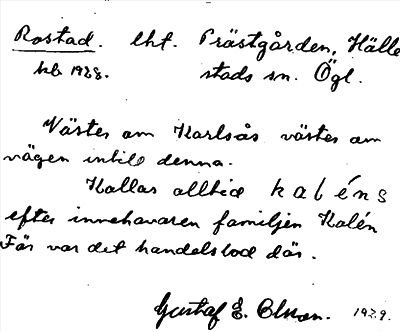 Rostad. lht. Prästgården, Hälle
kb 1928. stads sn. Ögl.
Väster om Karlsås väster om
vägen intill denna.
Kallas alltid kaléns
efter innehavaren familjen Kalén
Förr var det handelsbod där.
Gustaf E. Olsson. 1929.